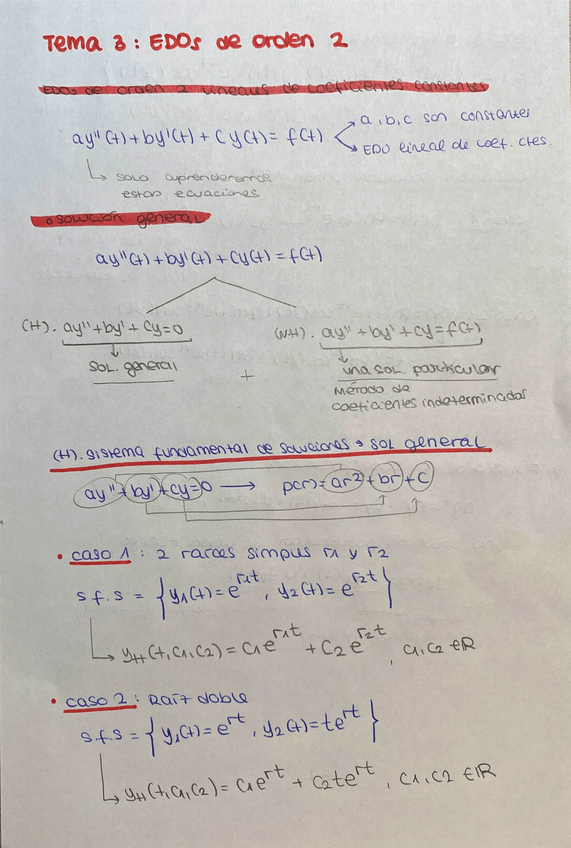 Tema 3: EDOs de orden 2
EDOs de orden 2 lineales de coeficientes constantes
ay''(t)+by'(t)+cy(t)=f(t)
a,b,c son constantes
EDO lineal de coef. ctes.
solo aprenderemos
estas ecuaciones
• solución general
ay''(t)+by'(t)+cy(t)=f(t)
(H). ay''+by'+cy=0
(NH). ay''+by'+cy=f(t)
SOL. general
+
una sol. particular
Método de
coeficientes indeterminados
(H). sistema fundamental de soluciones → SOL general
ay''+by'+cy=0 → p(r)=ar²+br+c
• caso 1: 2 raíces simples r1 y r2
s.f.s = { y1(t)=e^r1t, y2(t)=e^r2t }
yH(t,c1,c2)=c1e^r1t + c2e^r2t, c1,c2 ∈ℝ
• caso 2: Raíz doble
s.f.s = { y1(t)=e^rt, y2(t)=te^rt }
yH(t,c1,c2)=c1e^rt + c2te^rt, c1,c2 ∈ℝ